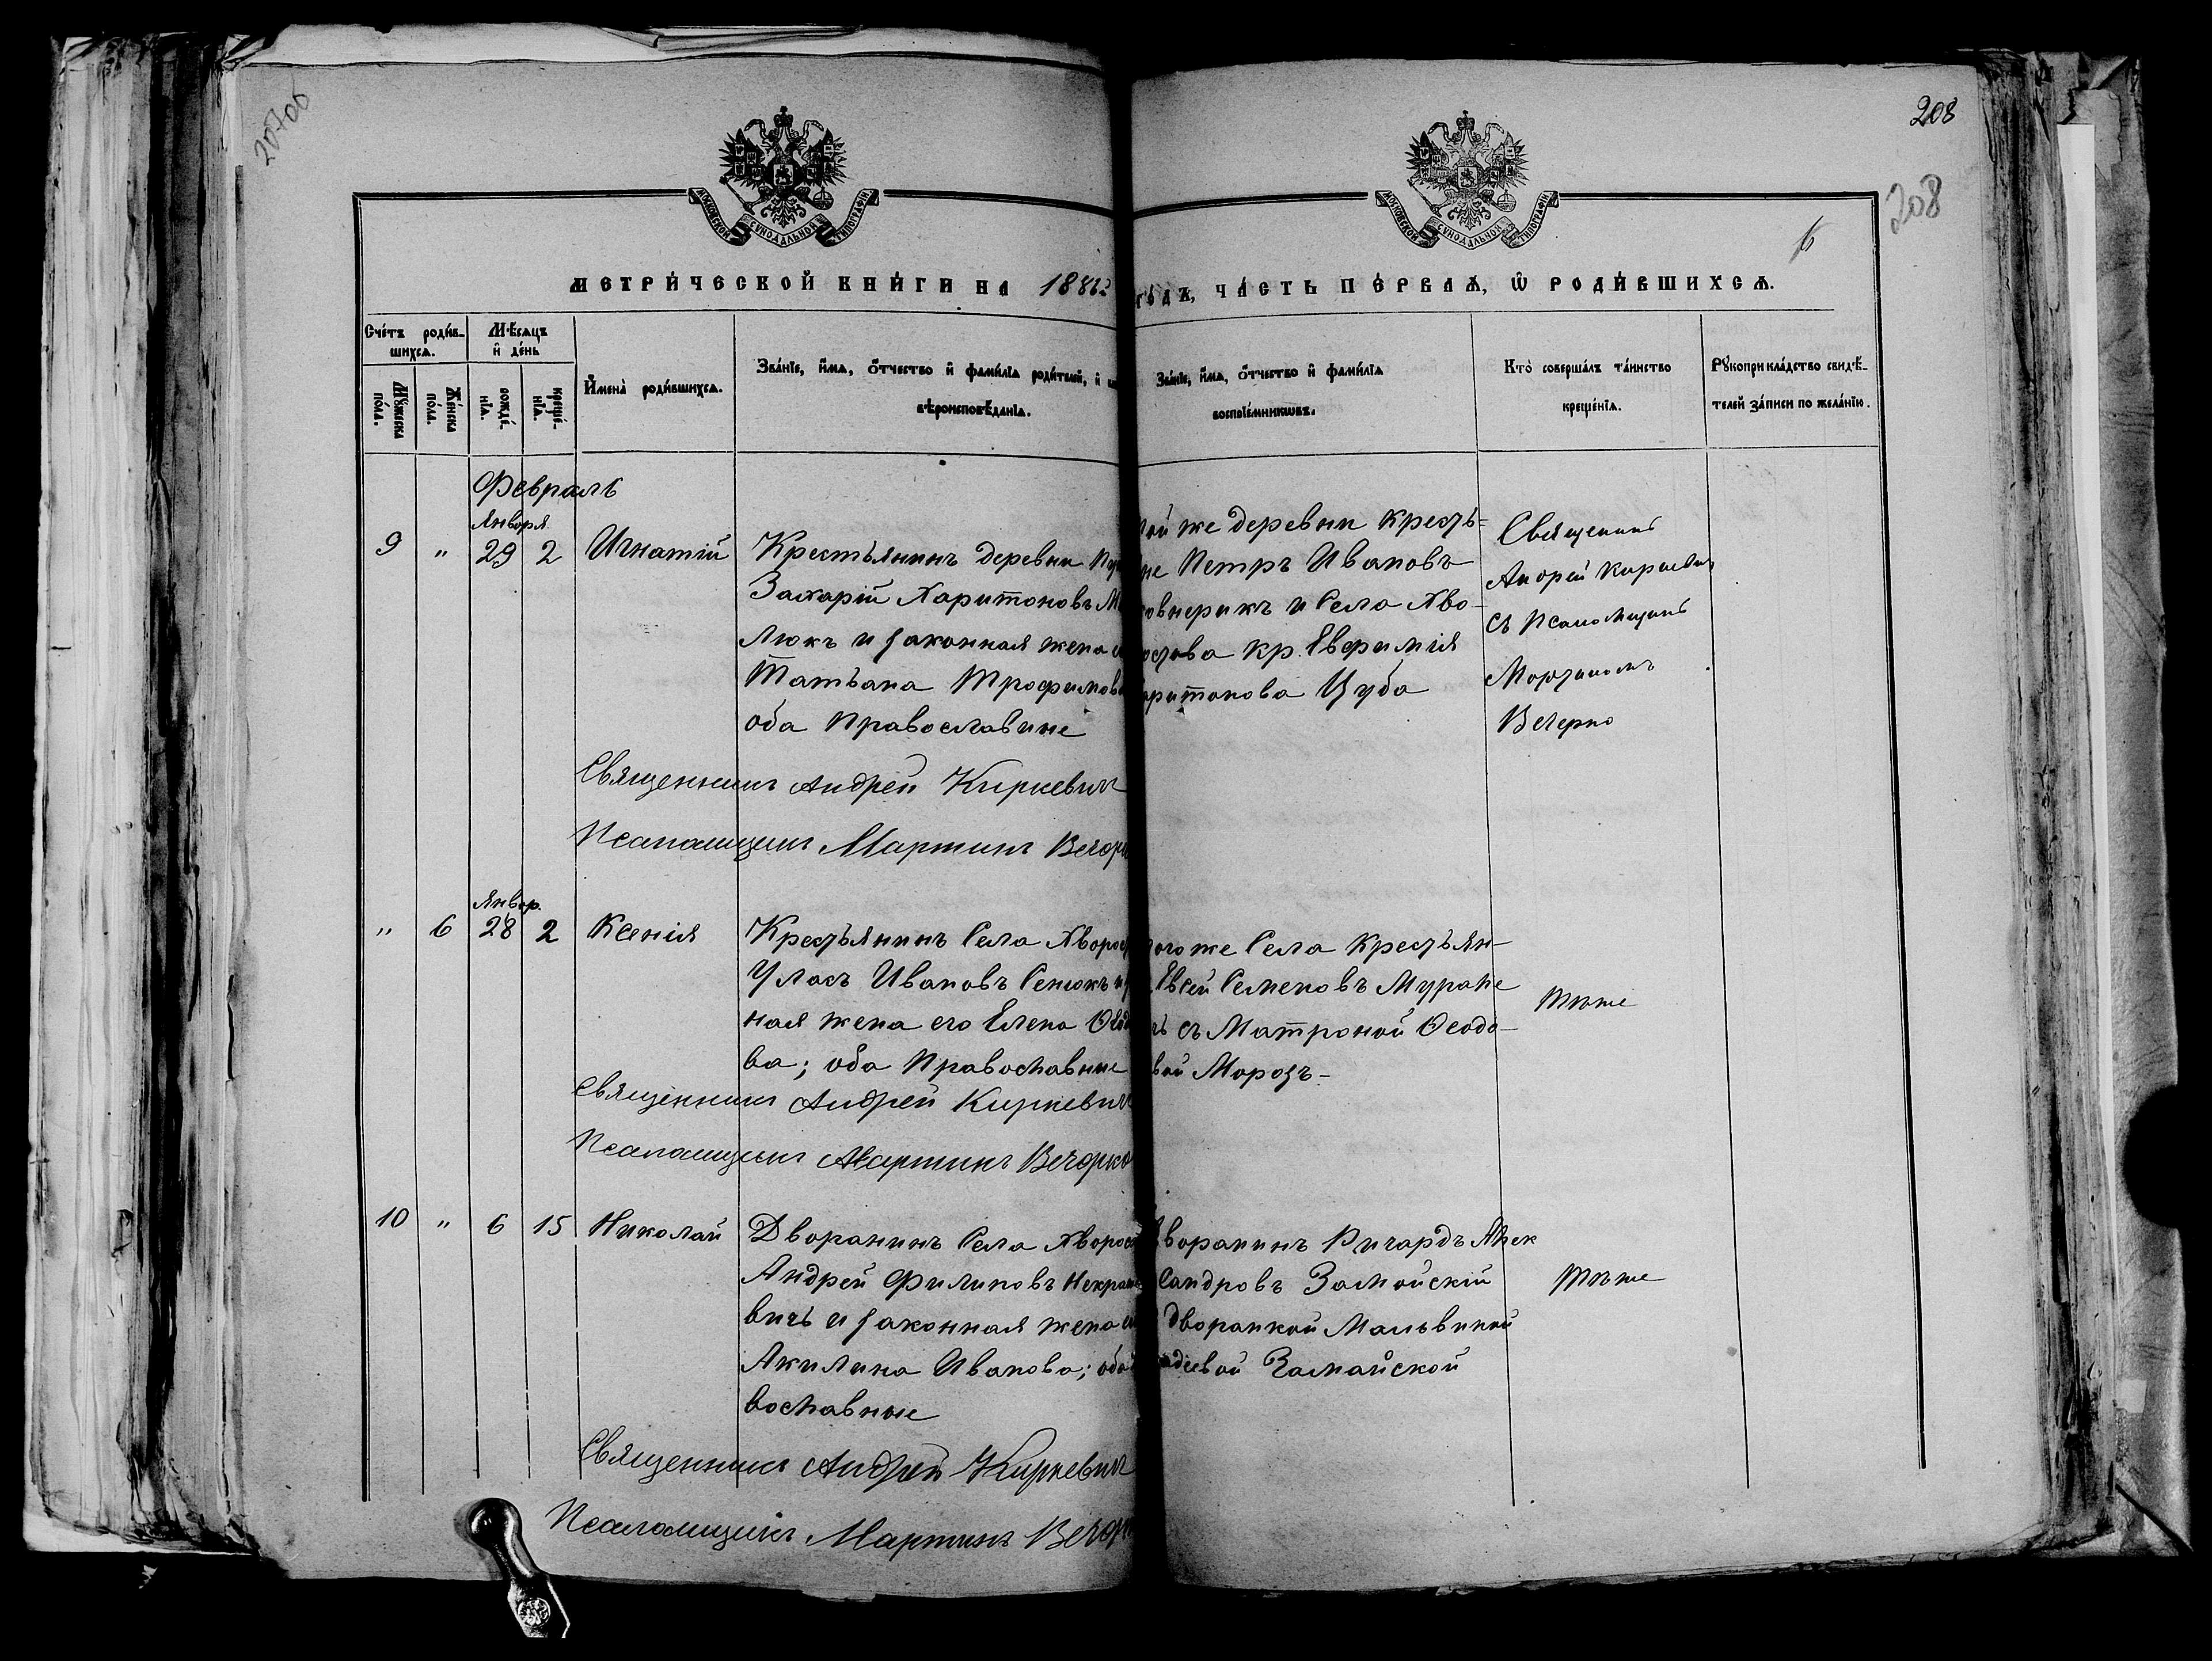 208
208
6
МОСКОВСКОЙ СУНОДАЛЬНОЙ ТИПОГРАФІИ
МОСКОВСКОЙ СУНОДАЛЬНОЙ ТИПОГРАФІИ
МЕТРИЧЕСКОЙ КНИГИ НА
ГОДЪ, ЧАСТЬ ПЕРВАЯ, Ѿ РОДИВШИХСЯ.
Счетъ родив-
шихся.
Мѣсяцъ
и день
Мужеска
пола.
Женска
пола.
рожде-
нія.
креще-
нія.
Имена родившихся.
Званіе, имя, отчество и фамилія родителей, и
вѣроисповѣданія.
Званіе, имя, отчество и фамилія
воспріемниковъ.
Кто совершалъ таинство
крещенія.
Рукоприкладство свидѣ-
телей записи по желанію.
Февраль
Января
9 " 29 2 Игнатій
Крестьянинъ деревни
Захарій Харитоновъ
люкъ и законная жена
Татьана Трофимов
оба Православние
же деревни Кресть=
Петръ Ивановъ
и Села Хво-
кр. Евфимія
Цуба
Священникъ
Андрей Киркевич
съ Псаломщикомъ
Мартиномъ
Вечерко
Священникъ Андрей Киркевич
Псаломщикъ Мартинъ Вечорк
Январ.
" 6 28 2 Ксенія
Крестьянинъ Села Хворост
Уласъ Ивановъ Сенюкъ и
ная жена его Елена
ва; оба Православние
тогоже Села Крестьян-
Евсей Семеновъ Муране
съ Матроной Ѳеодо-
вой Морозъ-
Тѣже
Священникъ Андрей Киркевич
Псаломщикъ Мартинъ Вечорко
10 " 6 15 Николай
Дворанинъ Села Хворост
Андрей Филиповъ Некраш
вичъ и законная жена
Акилина Иванова; оба
вославные
Дворанинъ Ричардъ Алек
сандровъ Замойскій
дворанкой Мальвиной
Замайской
Тѣже
Священникъ Андрей Киркевич
Псаломщикъ Мартинъ Вечорк